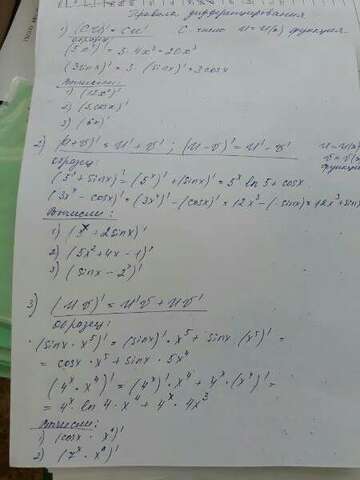 Правила дифференцирования
1) (CU)' = CU' C число U=U(x) функция
образец:
(5x⁴)' = 5·4x³ = 20x³
(3sinx)' = 3·(sinx)' = 3cosx
Вычисли:
2) (5cosx)'
2) (U+V)' = U'+V' ; (U-V)' = U'-V'
Образец:
(5ˣ+sinx)' = (5ˣ)'+(sinx)' = 5ˣ ln5 + cosx
(3x⁴-cosx)' = (3x⁴)'-(cosx)' = 12x³-(-sinx) = 12x³+sin
Вычисли:
1) (3ˣ+2sinx)'
2) (5x²+4x-1)'
3) (sinx-2ˣ)'
3) (UV)' = U'V + UV'
Образец:
(sinx·x⁵)' = (sinx)'·x⁵ + sinx·(x⁵)' =
= cosx·x⁵ + sinx·5x⁴
(4ˣ·x⁴)' = (4ˣ)'·x⁴ + 4ˣ·(x⁴)' =
= 4ˣ ln4·x⁴ + 4ˣ·4x³
Вычисли: